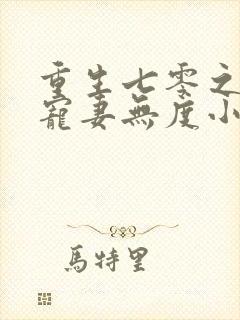 重生七零之
寵妻無度小
馬特里